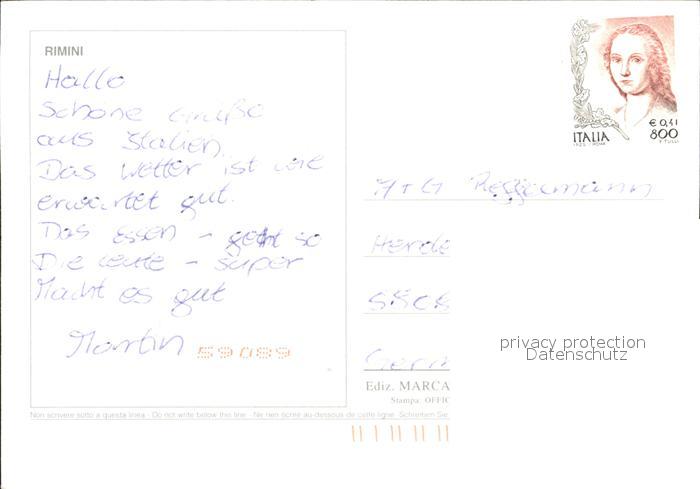 RIMINI
Hallo
Schöne Grüße
aus Italien.
Das Wetter ist wie
erwartet gut.
Das Essen - geht so
Die Leute - super
Macht es gut
Martin
59089
€ 0,41
ITALIA 800
Herde
Germ
privacy protection
Datenschutz
Ediz. MARCA
Stampa: OFFIC
Non scrivere sotto a questa linea - Do not write below this line - Ne rien écrire au-dessous de cette ligne. Schreiben Sie